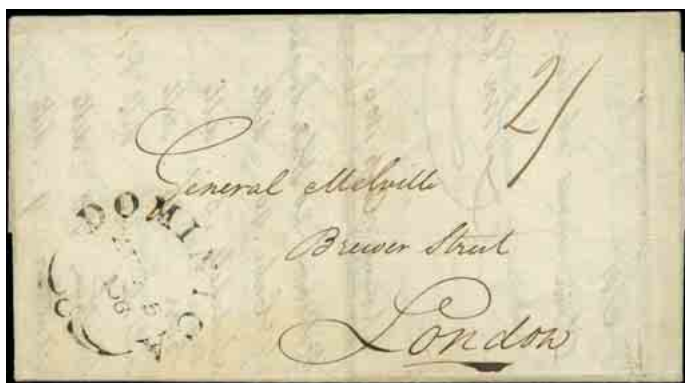 2/
General Melville
Brewer Street
London
DOMINICA